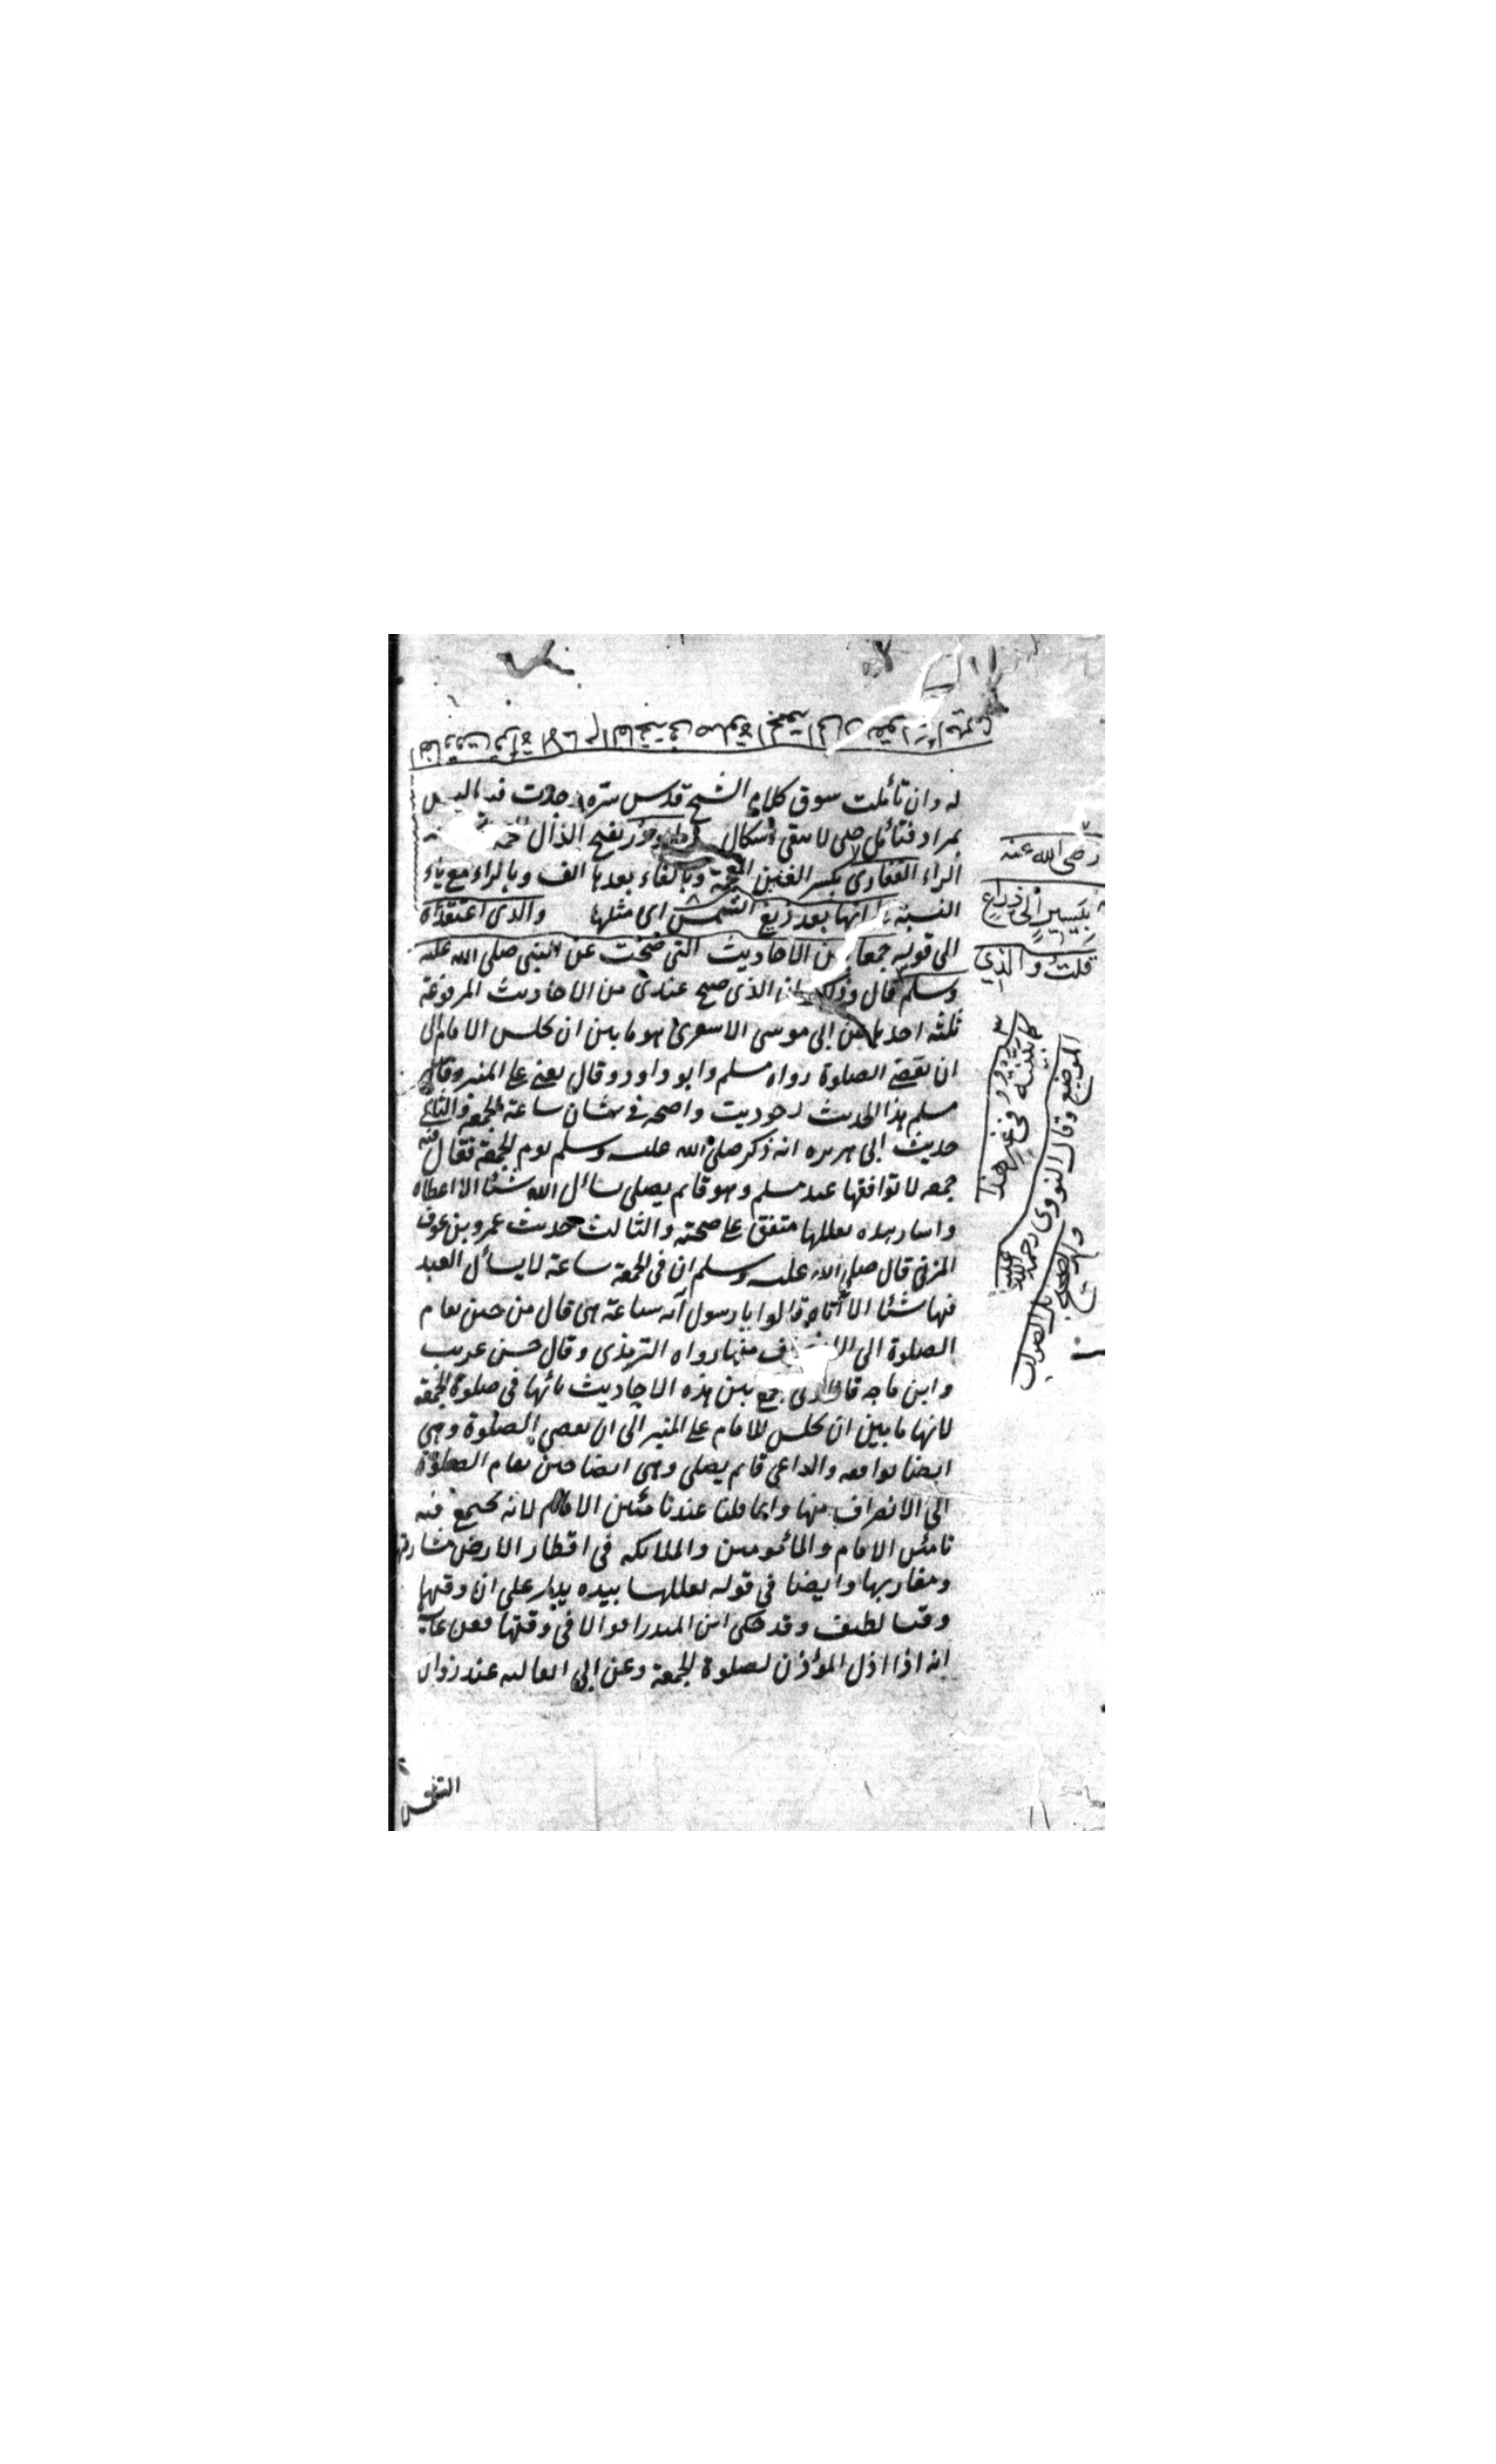 له وان تأملت سوق كلام الشيخ قدس سره وجدت فيه ما ليس
بمراد فتأمل حتى لا يبقى اشكال بفتح الذال
الراء الغفاري بكسر الغين المعجمة وبالفاء بعدها الف وبالراء مع ياء
النسبة انها بعد زيغ الشمس اى مثلها والذى اعتقده
الى قوله جمعا بين الاحاديث التى صحت عن النبى صلى الله عليه
وسلم قال وذلك ان الذى صح عندى من الاحاديث المرفوعة
ثلثه احدها عن ابى موسى الاسعرى هو ما بين ان يجلس الامام الى
ان يقضى الصلوة رواه مسلم وابو داود وقال يعنى على المنبر وقال
مسلم هذا الحديث اجود حديث واصحه فى شان ساعة الجمعة والثانى
حديث ابى هريره انه ذكر صلى الله عليه وسلم يوم الجمعة فقال فيه
جمعه لا توافقها عبد مسلم وهو قايم يصلى يسأل الله شيئا الا اعطاه
واسار بيده يقللها متفق على صحته والثالث حديث عمرو بن عوف
المزنى قال صلى الله عليه وسلم ان فى الجمعة ساعة لا يسأل العبد
فيها شيئا الا آتاه قالوا يا رسول الله اية ساعة هى قال من حين يقام
الصلوة الى الانصراف منها رواه الترمذى وقال حسن غريب
وابن ماجه قال جمع بين هذه الاحاديث بانها فى صلوة الجمعة
لانها ما بين ان يجلس الامام على المنبر الى ان يقضى الصلوة وهى
ايضا يوافقه والداعى قايم يصلى وهى ايضا حين يقام الصلوة
الى الانصراف منها وانما قلنا عند تامين الامام لانه يجتمع فيه
تامين الامام والمأمومين والملايكه فى اقطار الارض مشارقها
ومغاربها وايضا فى قوله يقللها بيده يدل على ان وقتها
وقت لطيف وقد حكى ابن المنذر اقوالا فى وقتها فعن عايشة
انه اذا اذن المؤذن لصلوة الجمعة وعن ابى العاليه عند زوال
الشمس
رضى الله عنه
بيسير الى ذراع
قلت والذى
فى غير هذا
الموضع وقال النووى رحمة الله عليه
والصحيح بل الصواب